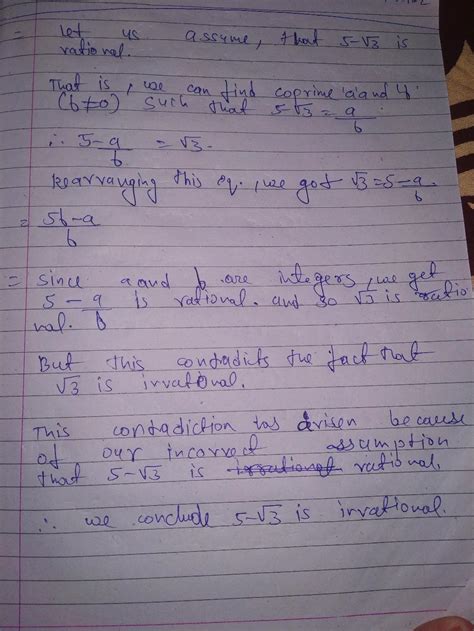 = Let us assume, that 5-√3 is
rational.
That is, we can find coprime 'a' and 'b'
(b≠0) such that 5-√3 = a/b
∴ 5-a/b = √3.
Rearranging this eq., we got √3 = 5-a/b
= 5b-a/b
= Since a and b are integers, we get
5 - a/b is rational. and so √3 is ratio
nal.
But this contradicts the fact that
√3 is irrational.
This contradiction has arisen because
of our incorrect assumption
that 5-√3 is irrational rational.
∴ we conclude 5-√3 is irrational.